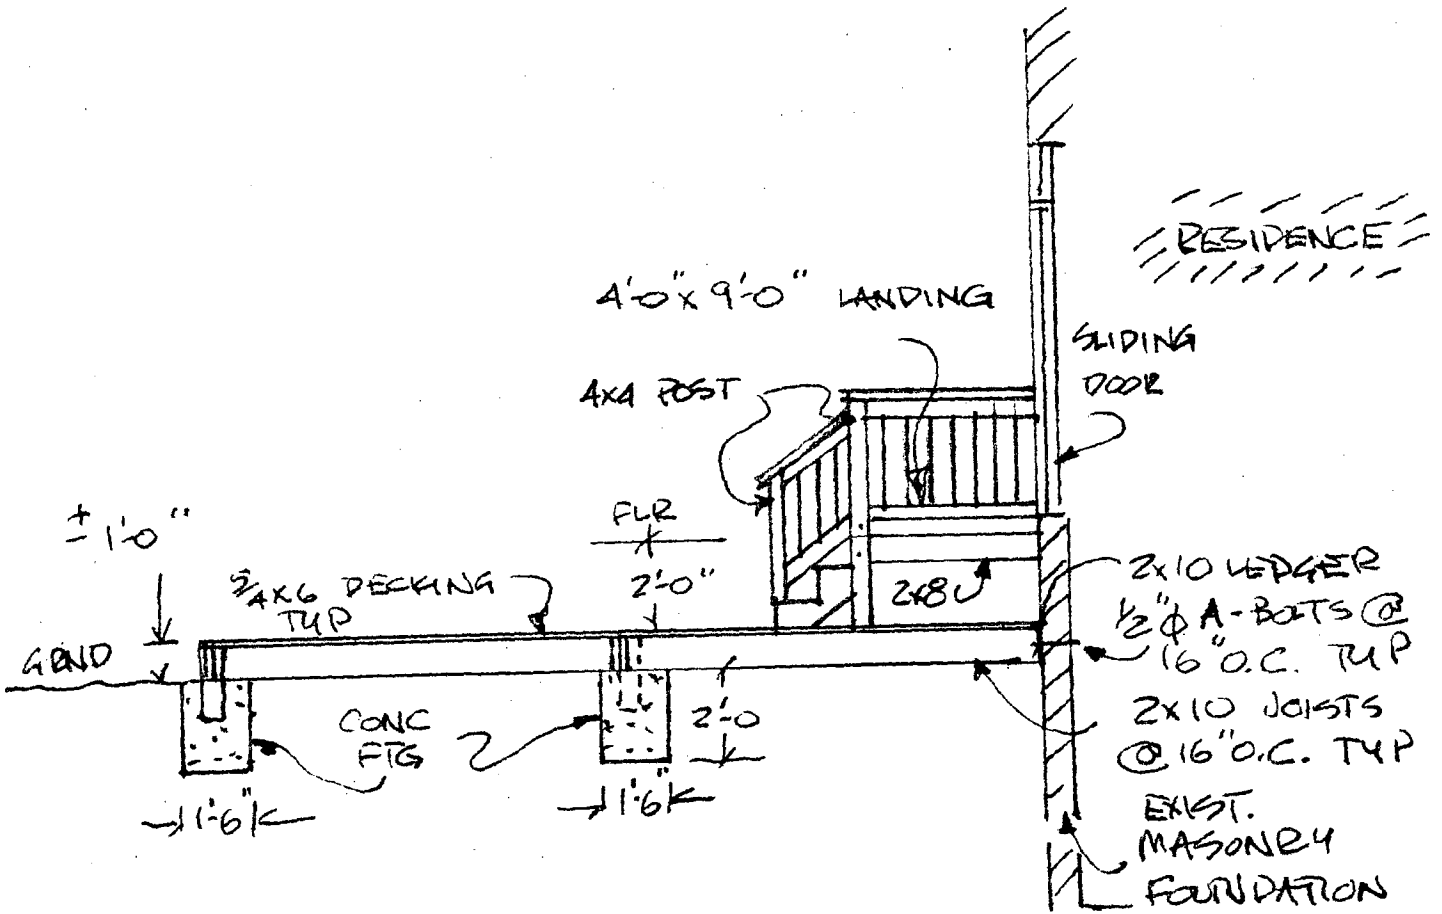 RESIDENCE
4'-0" x 9'-0" LANDING
SLIDING
DOOR
4x4 POST
± 1'-0"
FLR
2'-0"
5/4x6 DECKING
TYP
2x8
GRND
2x10 LEDGER
1/2"ϕ A-BOLTS @
16" O.C. TYP
CONC
FTG
2'-0
2x10 JOISTS
@ 16" O.C. TYP
1'-6"
1'-6"
EXIST.
MASONRY
FOUNDATION